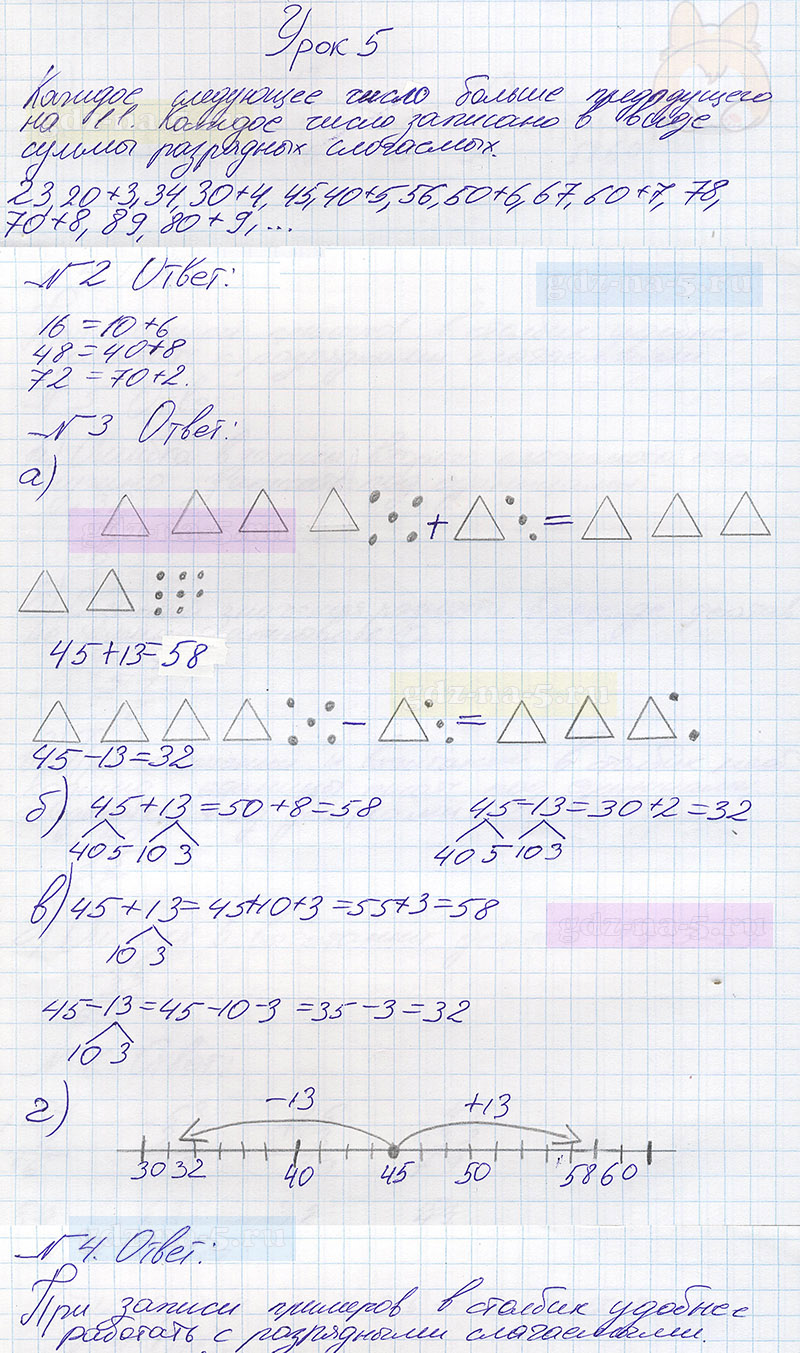 Урок 5
Каждое следующее число больше предыдущего
на 11. Каждое число записано в виде
суммы разрядных слогаемых.
23, 20+3, 34, 30+4, 45, 40+5, 56, 50+6, 67, 60+7, 78,
70+8, 89, 80+9, ...
№2 Ответ:
gdz-na-5.ru
16 = 10+6
48 = 40+8
72 = 70+2.
№3 Ответ:
а)
+ =
45+13=58
gdz-na-5.ru
- =
45-13=32
б) 45+13=50+8=58 45-13=30+2=32
40 5 10 3 40 5 10 3
в) 45+13=45+10+3=55+3=58
gdz-na-5.ru
10 3
45-13=45-10-3=35-3=32
10 3
г) -13 +13
30 32 40 45 50 58 60
№4. Ответ:
При записи примеров в столбик удобнее
работать с разрядными слагаемыми.